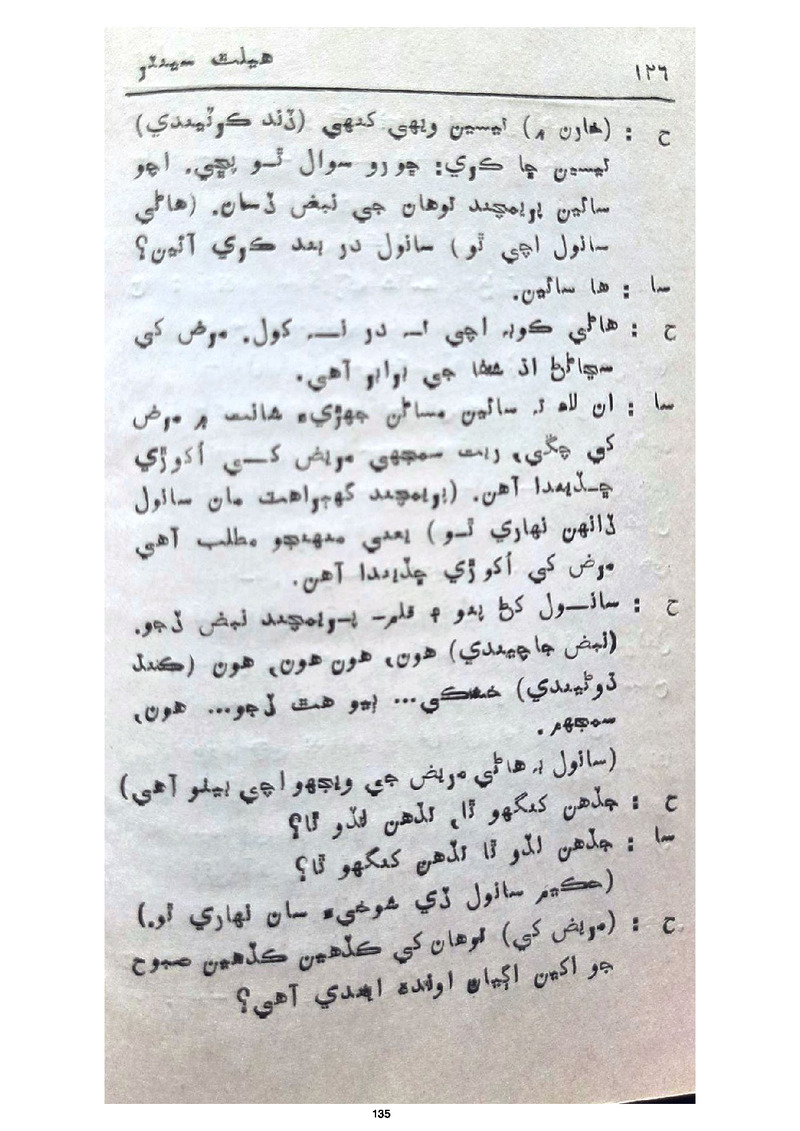 هيلٿ سينٽر
١٢٦
ح : (خان ۾) ليسين ويهي کنهي (ڏند ڪرٽيندي)
ليسين ڇا ڪري: ڇورو سوال ٿو پڇي. اچو
سائين پريمچند توهان جي نبض ڏسان. (هاڻي
سانول اچي ٿو) سانول در بند ڪري آئين؟
سا : ها سائين.
ح : هاڻي ڪوبہ اچي تہ در نہ کول. مرض کي
سڃاڻڻ اڌ شفا جي برابر آهي.
سا : ان لاءِ تہ سائين مساڻن جهڙيءَ شانت ۾ مرض
کي چڱيءَ ريت سمجهي مريض کي اُکوڙي
ڇڏيندا آهن. (پريمچند گهٻراهٽ مان سانول
ڏانهن نهاري ٿو) يعني منهنجو مطلب آهي
مرض کي اُکوڙي ڇڏيندا آهن.
ح : سانول کڻ پنو ۽ قلم- پريمچند نبض ڏجو.
(نبض جاچيندي) هون، هون هون، هون (ڪنڌ
ڌوڻيندي) خشڪي... ٻيو هٿ ڏجو... هون،
سمجهم.
(سانول بہ هاڻي مريض جي ويجهو اچي بيٺو آهي)
ح : جڏهن کنگهو ٿا، تڏهن لڏو ٿا؟
سا : جڏهن لڏو ٿا تڏهن کنگهو ٿا؟
(حڪيم سانول ڏي شوخيءَ سان نهاري ٿو.)
ح : (مريض کي) توهان کي ڪڏهين ڪڏهين صبوح
جو اکين اڳيان اونده ايندي آهي؟
135